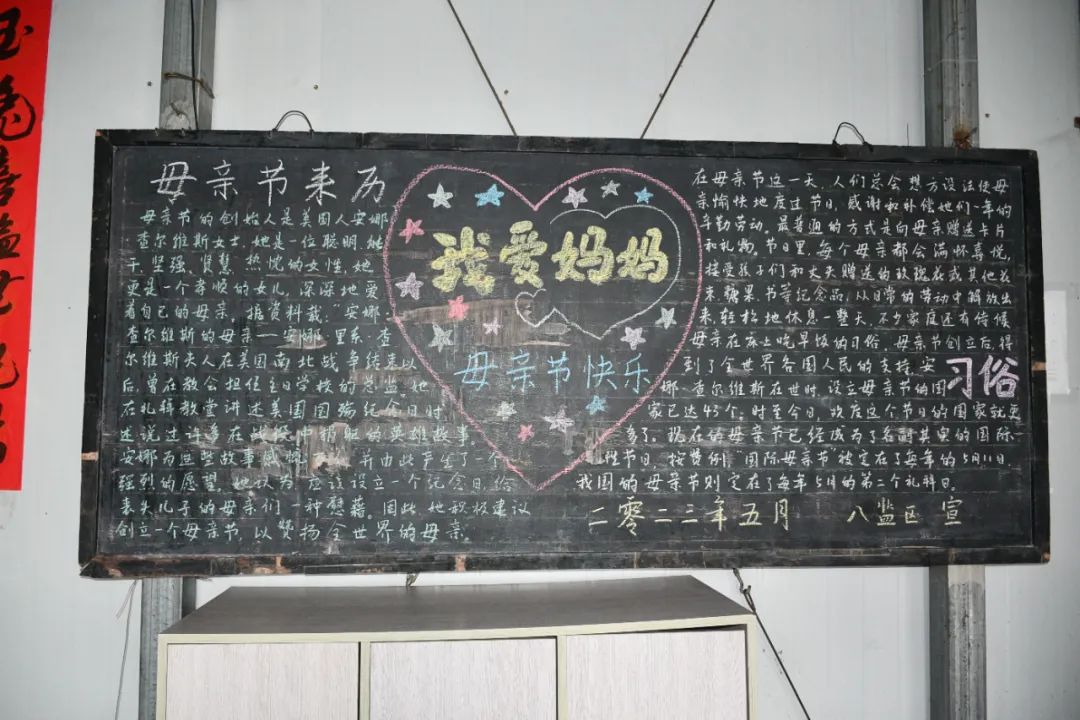 玉兔喜溢
母亲节来历
母亲节的创始人是美国人安娜·
查尔维斯女士,她是一位聪明、能
干、坚强、贤慧、热忱的女性,她
更是一个孝顺的女儿,深深地爱
着自己的母亲。据资料载:安娜·
查尔维斯的母亲——安娜·里系·查
尔维斯夫人在美国南北战争结束以
后,曾在教会担任主日学校的总监。她
在礼拜教堂讲述美国国殇纪念日时,
述说过许多在战役中捐躯的英雄故事,
安娜为这些故事感慨 并由此产生了一个
强烈的愿望。她认为应该设立一个纪念日,给
丧失儿子的母亲们一种慰藉。因此她积极建议
创立一个母亲节,以赞扬全世界的母亲。
我爱妈妈
母亲节快乐
在母亲节这一天,人们总会想方设法使母
亲愉快地度过节日,感谢和补偿她们一年的
辛勤劳动。最普通的方式是向母亲赠送卡片
和礼物。节日里,每个母亲都会满怀喜悦,
接受孩子们和丈夫赠送的玫瑰花或其他花
束、糖果、书等纪念品,从日常的劳动中解放出
来,轻松地休息一整天,不少家庭还有侍候
母亲在床上吃早饭的习俗。母亲节创立后,得
到了全世界各国人民的支持。安
习俗
娜·查尔维斯在世时,设立母亲节的国
家已达43个。时至今日,欢度这个节日的国家就更
多了。现在的母亲节已经成为了名副其实的国际
性节日,按赞例,“国际母亲节”被定在了每年的5月11日,
我国的母亲节则定在了每年5月的第二个礼拜日。
二零二三年五月 八监区 宣